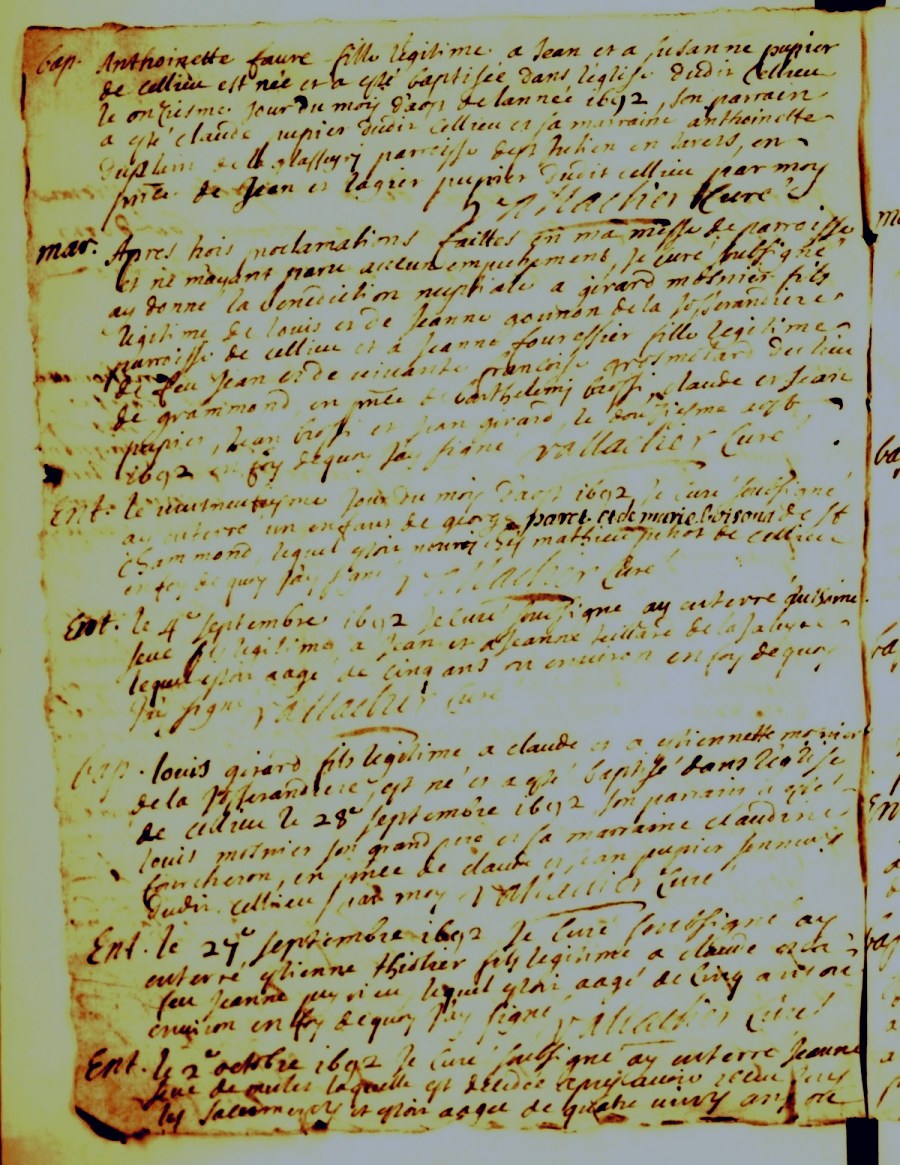 bap. Anthoinette faure fille legitime a Jean et a Susanne pupier
de cellieu est née et a esté baptisée dans leglise dudit Cellieu
le onziesme Jour du moy daost de lannée 1692, son parrain
a esté claude pupier dudit Cellieu et sa marraine anthoinette
de la parroisse de st Julien en Jarets, en
pnce de Jean et pupier dudit cellieu par moy
Vallachier Curé
mar. Apres trois proclamations faittes en ma messe de parroisse
et ne mayant paru aucun empechement, Je curé soubsigné
ay donné la benediction nuptiale a girard mosnier fils
legitime de louis et de Jeanne gounon de la Josserandiere
parroisse de cellieu et a Jeanne fouressier fille legitime
de feu Jean et de vivante francoise du lieu
de grammond, en pnce de barthelemy , claude et Jean
pupier, Jean et Jean girard, le douziesme aost
1692 en foy dequoy Jay signé Vallachier Curé
Ent. le Jour du moy daost 1692 Je Curé soubsigné
ay enterré un enfant de george parcet et de marie boisond de St
Chammond, lequel estoit nourry chés mathieu de cellieu
en foy de quoy Jay signé Vallachier Curé
Ent. le 4e septembre 1692 Je Curé soubsigné ay enterré
seue fils legitime a Jean et a Jeanne teillard de la
lequel estoit aagé de cinq ans ou environ en foy dequoy
Jay signé Vallachier Curé
bap. louis girard fils legitime a claude et a estiennette mosnier
de la Josserandiere est né et a esté baptisé dans leglise
de cellieu le 28e septembre 1692 son parrain a esté
louis mosnier son grand pere et sa marraine claudine
fourcheron, en pnce de claude et Jean pupier
dudit cellieu par moy Vallachier Curé
Ent. le 29e septembre 1692 Je Curé soubsigné ay
enterré estienne thiollier fils legitime a claude et a
feu Jeanne lequel estoit aagé de Cinq ans ou
environ en foy dequoy Jay signé Vallachier Curé
Ent. le 2e octobre 1692 Je Curé soubsigné ay enterré Jeanne
seue de mulet laquelle est decedée apres avoir receu tous
les sacrements et estoit aagée de quatre vingts ans ou